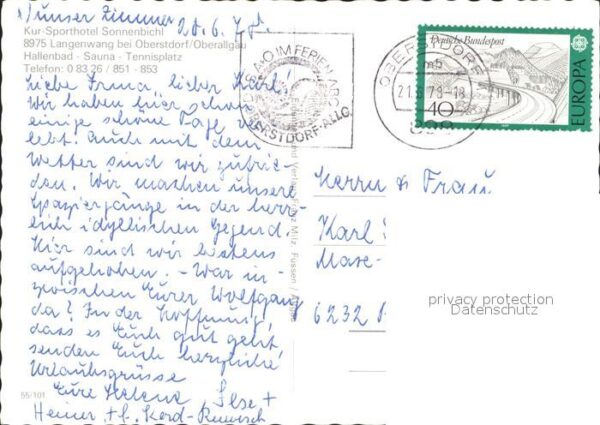 unser Zimmer 20.6.78.
Kur-Sporthotel Sonnenbichl
8975 Langenwang bei Oberstdorf/Oberallgäu
Hallenbad - Sauna - Tennisplatz
Telefon: 0 83 26 / 851 - 853
Liebe Irma, lieber Karl!
Wir haben hier schon
einige schöne Tage ver-
lebt. Auch mit dem
Wetter sind wir zufrie-
den. Wir machen unsere
Spaziergänge in der herr-
lich idyllischen Gegend.
Hier sind wir bestens
aufgehoben. - War in-
zwischen Eurer Wolfgang
da? In der Hoffnung,
dass es Euch gut geht
senden Euch herzliche
Urlaubsgrüsse
Eure Helene, Ilse +
Heiner
55/101
Verlag Franz Milz Füssen
IM FERIEN
OBERSTDORF-ALLG.
OBERSTDORF
mb
21. 78-18
898
Deutsche Bundespost
40
EUROPA
Herrn & Frau
Karl
Max-
6232
privacy protection
Datenschutz